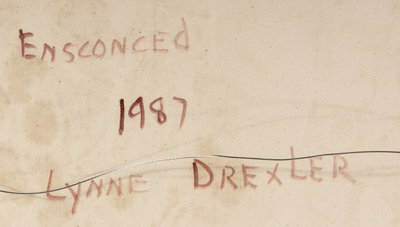 ENSCONCEd
1987
LYNNE DREXLER